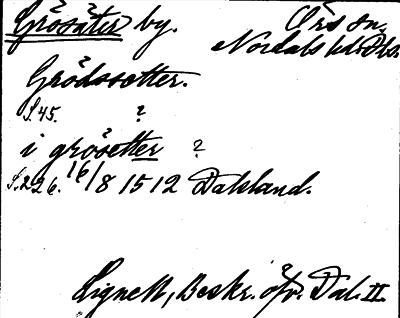 Grösäter by. Örs sn.
Nordals hd. Dls.
Grödssetter.
S. 45. ?
i grösetter ?
S. 226. 16/8 1512 Dalsland.
Lignell, Beskr. öfv. Dal. II.